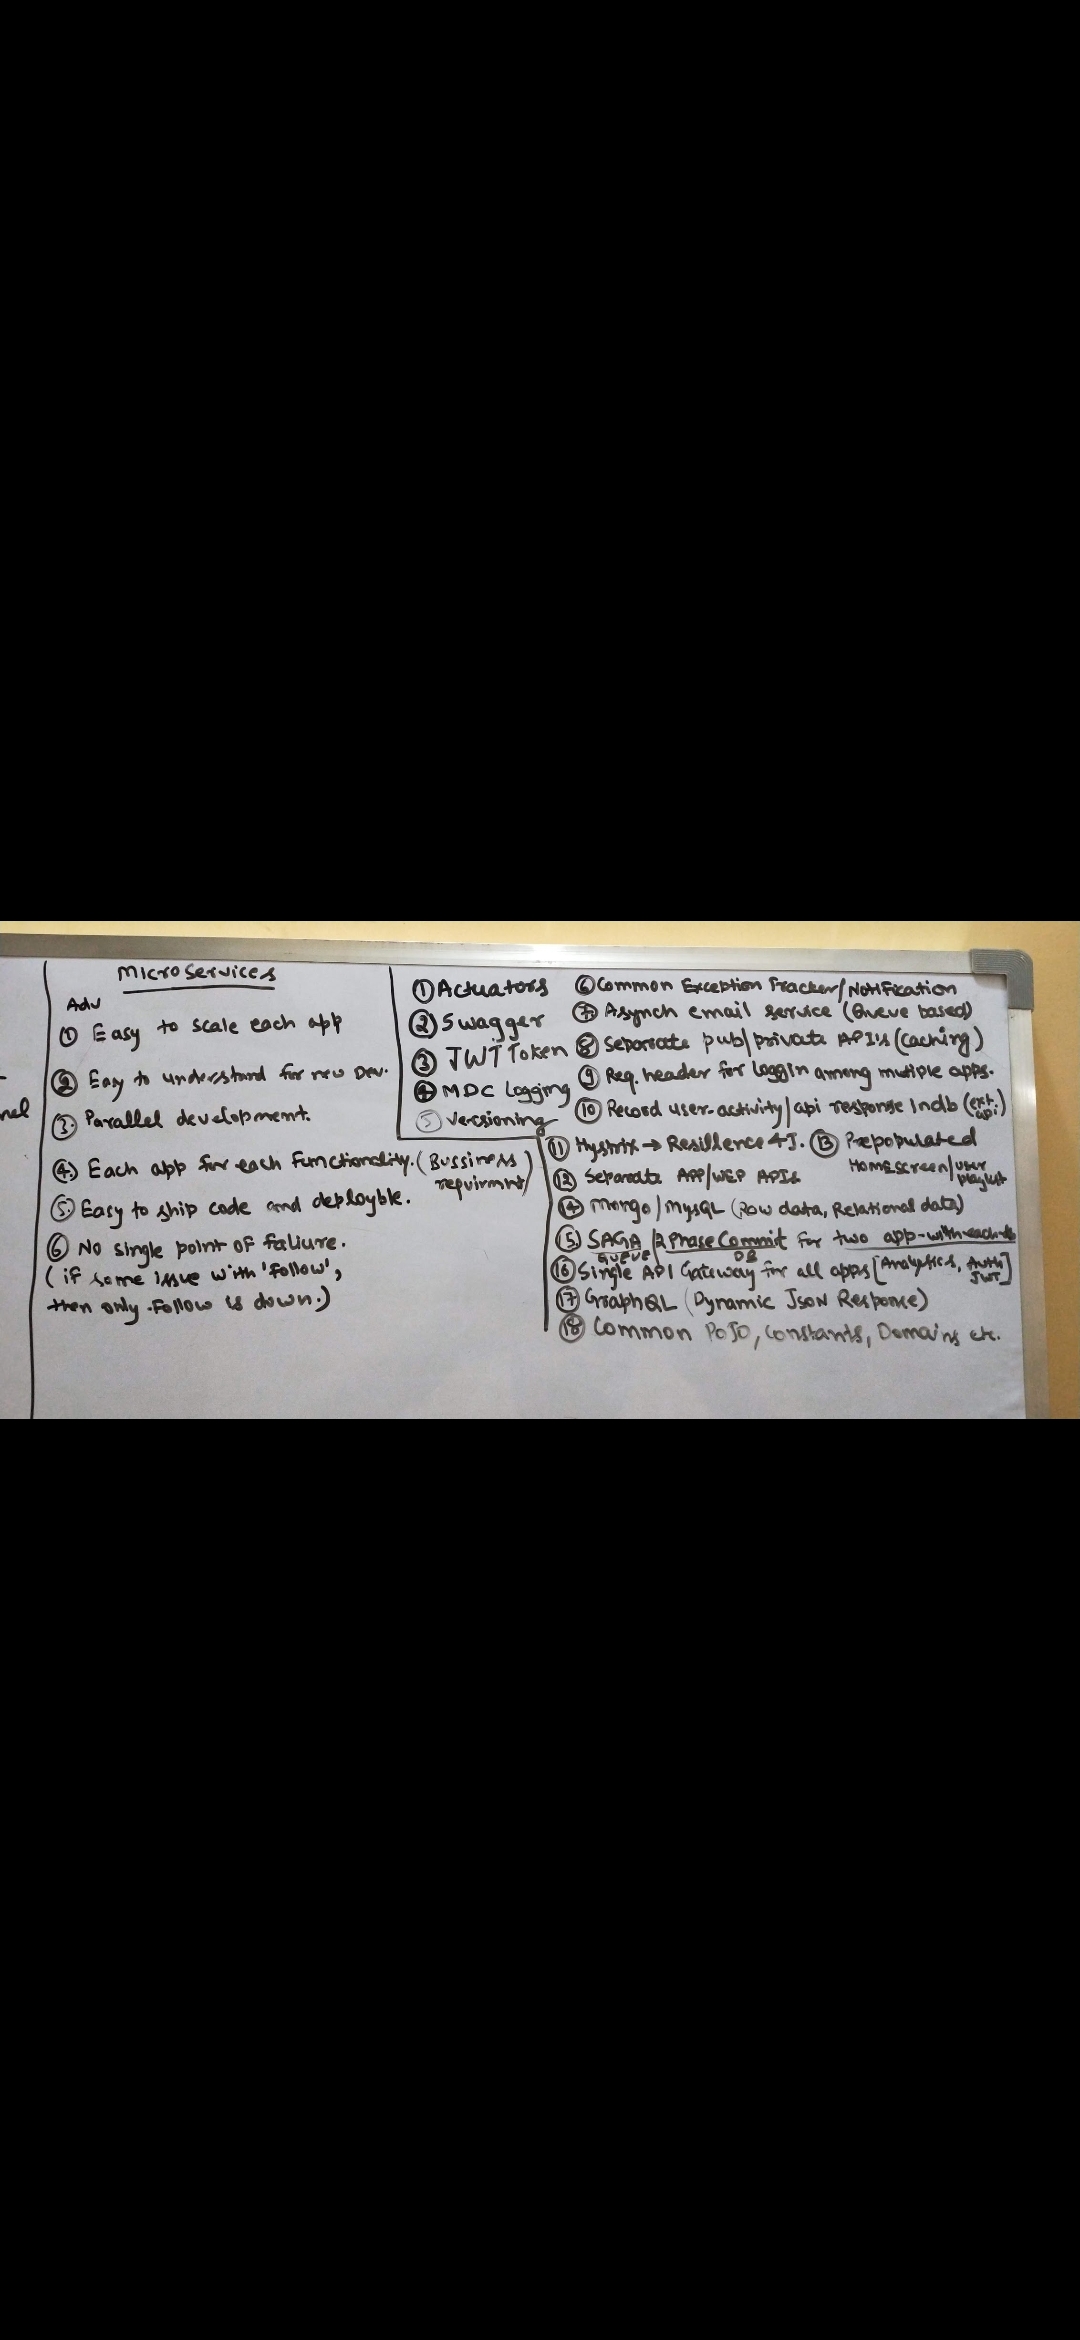 MicroServices
Adv
① Easy to scale each app
② Easy to understand for new Dev.
③. Parallel development.
④.) Each app for each functionality. (Bussiness
requirmnt)
⑤. Easy to ship code and deployble.
⑥ No single point of faliure.
( if some issue with 'follow',
then only follow is down.)
nel
① Actuators
② Swagger
③ JWT Token
④ MDC Logging
⑤ Versioning
⑥ Common Exception Tracker/Notification
⑦ Asynch email service (Queue based)
⑧ Separate pub/private API's (caching)
⑨ Req. header for loggin among mutiple apps.
⑩ Record user-activity/api response In db (ext. api.)
⑪ Hystrix → Resillence 4J. ⑬ Prepopulated
Homescreen/user
playlist
⑫ Separate APP/WEP APIs
⑭ Mongo/MySQL (Row data, Relational data)
⑮ SAGA /2 Phase Commit for two app-with-each
Queue DB
⑯ Single API Gateway for all apps [Analytics, Auth
JWT]
⑰ GraphQL (Dynamic Json Response)
⑱ Common POJO, Constants, Domains etc.